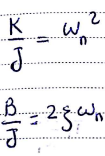 K/J = ωn²
B/J = 2ξωn